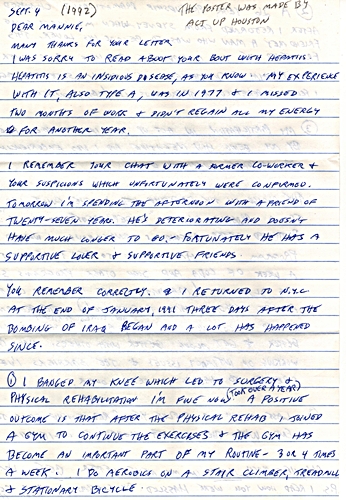 SEPT. 4 (1992) THE POSTER WAS MADE BY
ACT UP HOUSTON
DEAR MANNIE,
MANY THANKS FOR YOUR LETTER
I WAS SORRY TO READ ABOUT YOUR BOUT WITH HEPATITIS
HEPATITIS IS AN INSIDIOUS DISEASE, AS YOU KNOW. MY EXPERIENCE
WITH IT, ALSO TYPE A, WAS IN 1977 & I MISSED
TWO MONTHS OF WORK & DIDN'T REGAIN ALL MY ENERGY
FOR ANOTHER YEAR.
I REMEMBER YOUR CHAT WITH A FORMER CO-WORKER &
YOUR SUSPICIONS WHICH UNFORTUNATELY WERE CONFIRMED.
TOMORROW I'M SPENDING THE AFTERNOON WITH A FRIEND OF
TWENTY-SEVEN YEARS. HE'S DETERIORATING AND DOESN'T
HAVE MUCH LONGER TO GO. FORTUNATELY HE HAS A
SUPPORTIVE LOVER & SUPPORTIVE FRIENDS.
YOU REMEMBER CORRECTLY. I RETURNED TO N.Y.C.
AT THE END OF JANUARY, 1991 THREE DAYS AFTER THE
BOMBING OF IRAQ BEGAN AND A LOT HAS HAPPENED
SINCE.
① I BANGED MY KNEE WHICH LED TO SURGERY &
PHYSICAL REHABILITATION (TOOK OVER A YEAR) I'M FINE NOW. A POSITIVE
OUTCOME IS THAT AFTER THE PHYSICAL REHAB I JOINED
A GYM TO CONTINUE THE EXERCISES & THE GYM HAS
BECOME AN IMPORTANT PART OF MY ROUTINE - 3 OR 4 TIMES
A WEEK. I DO AEROBICS ON A STAIR CLIMBER, TREADMILL
& STATIONARY BICYCLE.